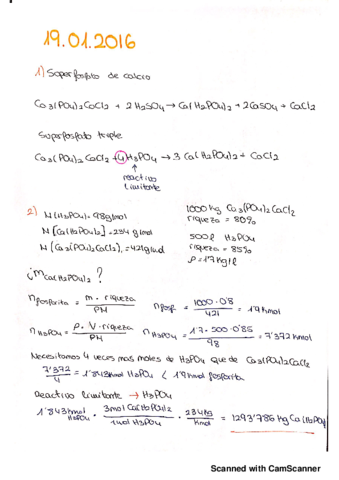 19.01.2016
1) Superfosfato de calcio
Ca3(PO4)2CaCl2 + 2H2SO4 → Ca(H2PO4)2 + 2CaSO4 + CaCl2
Superfosfato triple
Ca3(PO4)2CaCl2 + 4H3PO4 → 3Ca(H2PO4)2 + CaCl2
↑
reactivo
limitante
2) M(H3PO4) = 98g/mol
M[Ca(H2PO4)2] = 234 g/mol
M(Ca3(PO4)2CaCl2) = 421g/mol
1000 kg Ca3(PO4)2CaCl2
riqueza = 80%
500l H3PO4
riqueza = 85%
ρ = 1'7 kg/l
¿mCa(H2PO4)2?
nfosforita = m · riqueza / PM
nfosf = 1000·0'8 / 421 = 1'9 Kmol
nH3PO4 = ρ·V·riqueza / PM
nH3PO4 = 1'7·500·0'85 / 98 = 7'372 Kmol
Necesitamos 4 veces más moles de H3PO4 que de Ca3(PO4)2CaCl2
7'372 / 4 = 1'843 Kmol H3PO4 < 1'9 Kmol fosforita
Reactivo limitante → H3PO4
1'843 Kmol H3PO4 · 3mol Ca(H2PO4)2 / 1mol H3PO4 · 234 kg / Kmol = 1293'786 Kg Ca(H2PO4)
Scanned with CamScanner